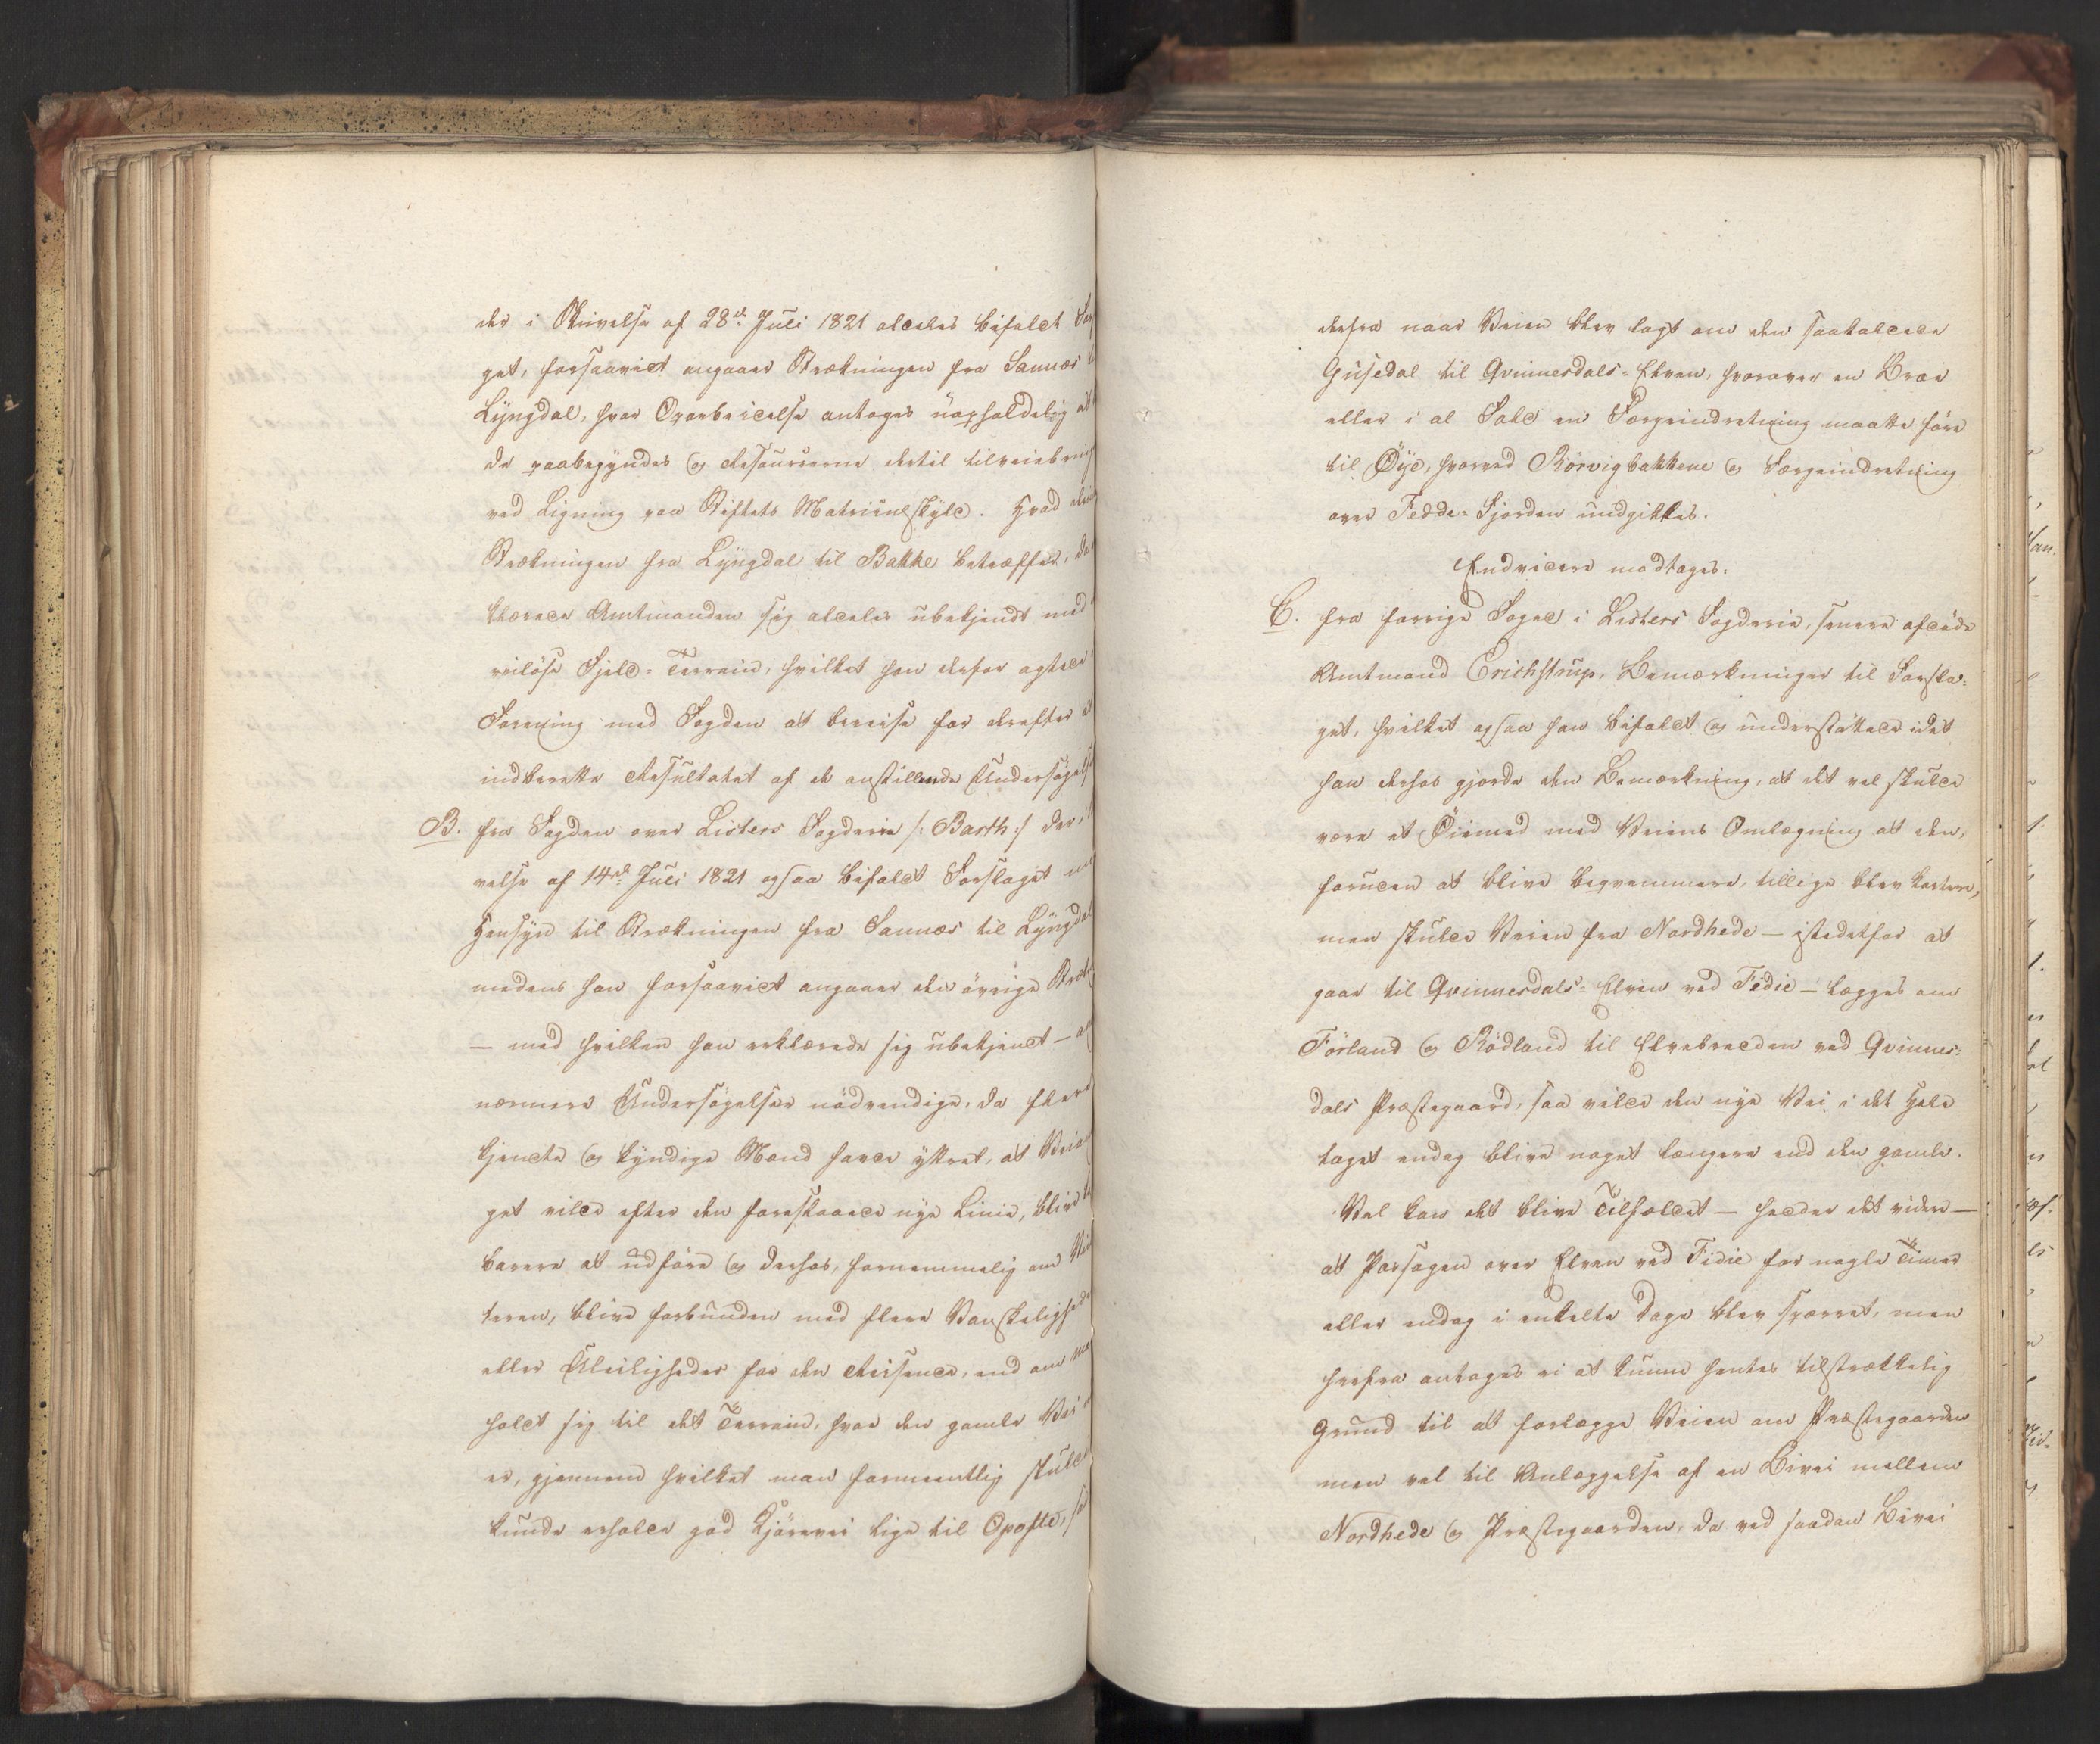 der i Skrivelse af 28de Juli 1821 aldeles bifaldt For
get, forsaavidt angaaer Strækningen fra Sannæs
Lyngdal, hvor Oparbeidelse antages uopholdelig at
de paabegyndes og Ressourcerne dertil tilveiebring
ved Ligning paa Stiftets Matriculskyld. Hvad
Strækningen fra Lyngdal til Bakke betræffer,
klærede Amtmanden sig aldeles ubekjendt med
veiløse Fjeld-Terrain, hvilket han derfor agtede
Forening med Fogden at bereise for derefter at
indberette Resultatet af de anstillende Undersøgelse
B. fra Fogden over Listers Fogderie /: Barth :/ der i
velse af 14de Juli 1821 ogsaa bifaldt Forslaget
Hensyn til Strækningen fra Sannæs til Lyngdal
medens han forsaavidt angaaer den øvrige Stræk
— med hvilken han erklærede sig ubekjendt —
nærmere Undersøgelser nödvendige, da flere
kjendte og kyndige Mænd havde yttret, at Veian
get vilde efter den foreslaaede nye Linie, blive
barere at udføre og derhos, fornemmelig om Vin
teren, blive forbunden med flere Vanskelighede
eller Uleiligheder for den Reisende, end om man
holdt sig til det Terrain, hvor den gamle Vei
er, gjennem hvilket man formeentlig skulde
kunde erholde god Kjörevei lige til Opofte,
derfra naar Veien blev lagt om den saakaldede
Gusedal til Qvinnesdals-Elven, hvorover en Broe
eller i al Fald en Færgeindretning maatte føre
til Öye, hvorved Rörvigbakkene og Færgeindretning
over Fedde-Fjorden undgikkes.
Endvidere modtoges.
C. fra forrige Foged i Listers Fogderie, senere afdöde
Amtmand Erichstrup, Bemærkninger til Forsla-
get, hvilket ogsaa han bifaldt og understøttede idet
han derhos gjorde den Bemærkning, at det vel skulde
være et Öiemed med Veiens Omlægning at den,
foruden at blive beqvemmere, tillige blev kortere,
men skulde Veien fra Nordhede — istedetfor at
gaae til Qvinnesdals-Elven ved Fidie — lægges om
Förland og Rödland til Elvebredden ved Qvinnes-
dals Præstegaard, saa vilde den nye Vei i det Hele
taget endog blive noget længere end den gamle.
Vel kan det blive Tilfældet — hedder det videre —
at Passagen over Elven ved Fidie for nogle Timer
eller endog i enkelte Dage blev spærret, men
herfra antages ei at kunne hentes tilstrækkelig
Grund til at forlægge Veien om Præstegaarden
men vel til Anlæggelse af en Bivei mellem
Nordhede og Præstegaarden, da ved saadan Bivei